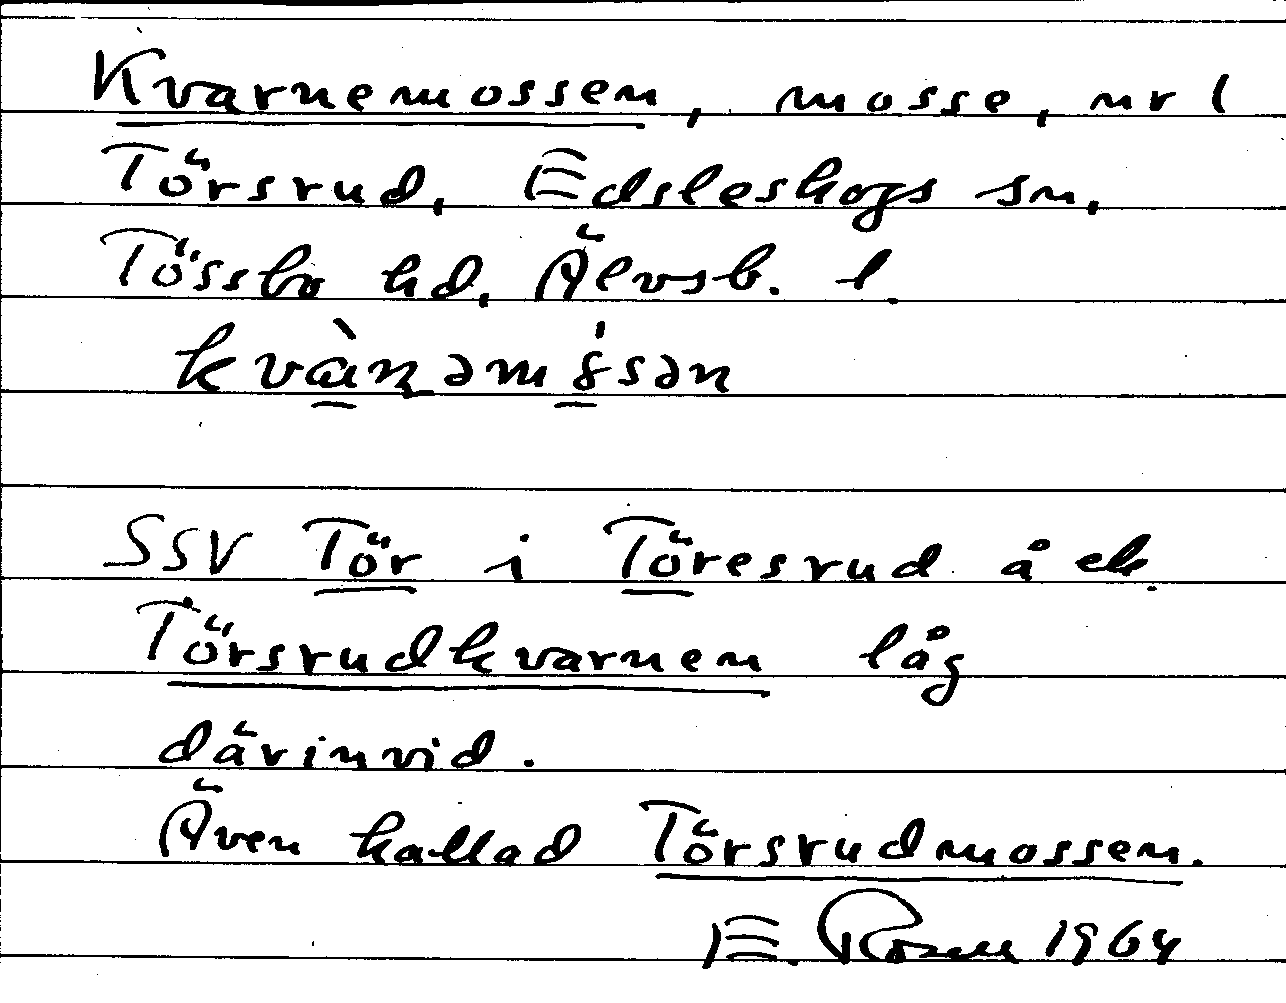 Kvarnemossen, mosse, nr 1
Törsrud, Edsleskogs sn.
Tössbo hd, Älvsb. l.
kvànəmósən
SSV Tör i Töresrud å ek.
Törsrudkvarnen låg
därinvid.
Även kallad Törsrudmossen.
E. Rosen 1964